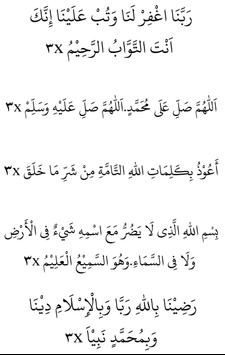 رَبَّنَا اغْفِرْ لَنَا وَتُبْ عَلَيْنَا إِنَّكَ
اَنْتَ التَّوَّابُ الرَّحِيْمُ ٣x
اَللّٰهُمَّ صَلِّ عَلَى مُحَمَّدٍ.اَللّٰهُمَّ صَلِّ عَلَيْهِ وَسَلِّمْ ٣x
أَعُوْذُ بِكَلِمَاتِ اللهِ التَّامَّةِ مِنْ شَرِّ مَا خَلَقَ ٣x
بِسْمِ اللهِ الَّذِى لَا يَضُرُّ مَعَ اسْمِهِ شَيْءٌ فِى الْأَرْضِ
وَلَا فِى السَّمَاءِ.وَهُوَ السَّمِيْعُ الْعَلِيْمُ ٣x
رَضِيْنَا بِاللهِ رَبًّا وَبِالْإِسْلَامِ دِيْنًا
وَبِمُحَمَّدٍ نَبِيْاً ٣x